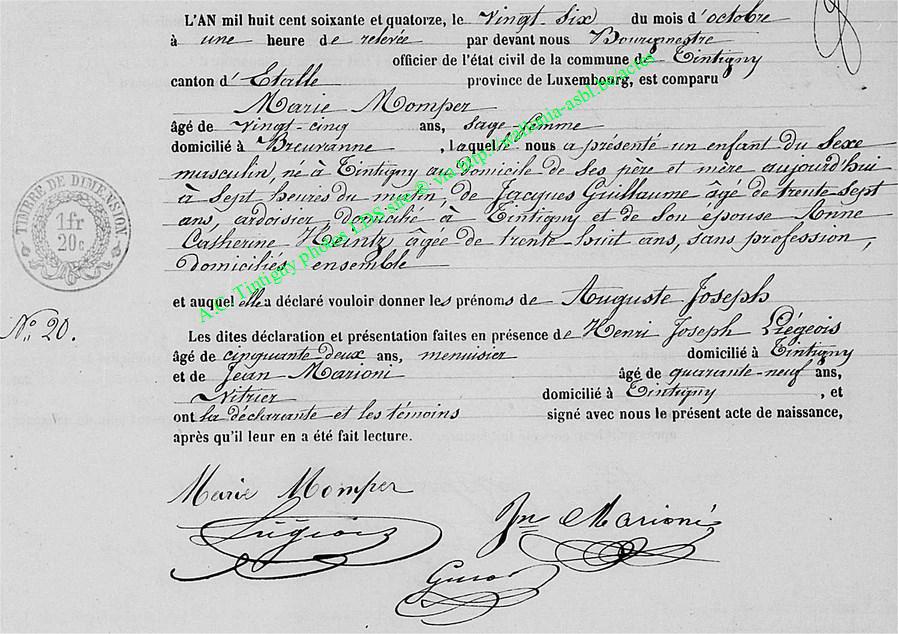 L'AN mil huit cent soixante et quatorze, le vingt six du mois d'octobre
à une heure de relevée par devant nous Bourgmestre
officier de l'état civil de la commune de Tintigny
canton d'Etalle province de Luxembourg, est comparu
Marie Momper
âgé de vingt-cinq ans, sage-femme
domicilié à Breuvanne, laquelle nous a présenté un enfant du sexe
masculin, né à Tintigny au domicile de ses père et mère aujourd'hui
à sept heures du matin, de Jacques Guillaume âgé de trente-sept
ans, ardoisier, domicilié à Tintigny et de son épouse Anne
Catherine Heintz, âgée de trente-huit ans, sans profession,
domiciliés ensemble
et auquel elle a déclaré vouloir donner les prénoms de Auguste Joseph
Les dites déclaration et présentation faites en présence de Henri Joseph Liégeois
âgé de cinquante deux ans, menuisier domicilié à Tintigny
et de Jean Marioni âgé de quarante-neuf ans,
Vitrier domicilié à Tintigny, et
ont la déclarante et les témoins signé avec nous le présent acte de naissance,
après qu'il leur en a été fait lecture.
N° 20.
TIMBRE DE DIMENSION
1fr
20c
Marie Momper
Liégeois
Jn Marioni
A.C. Tintigny photos LDS site® via http://